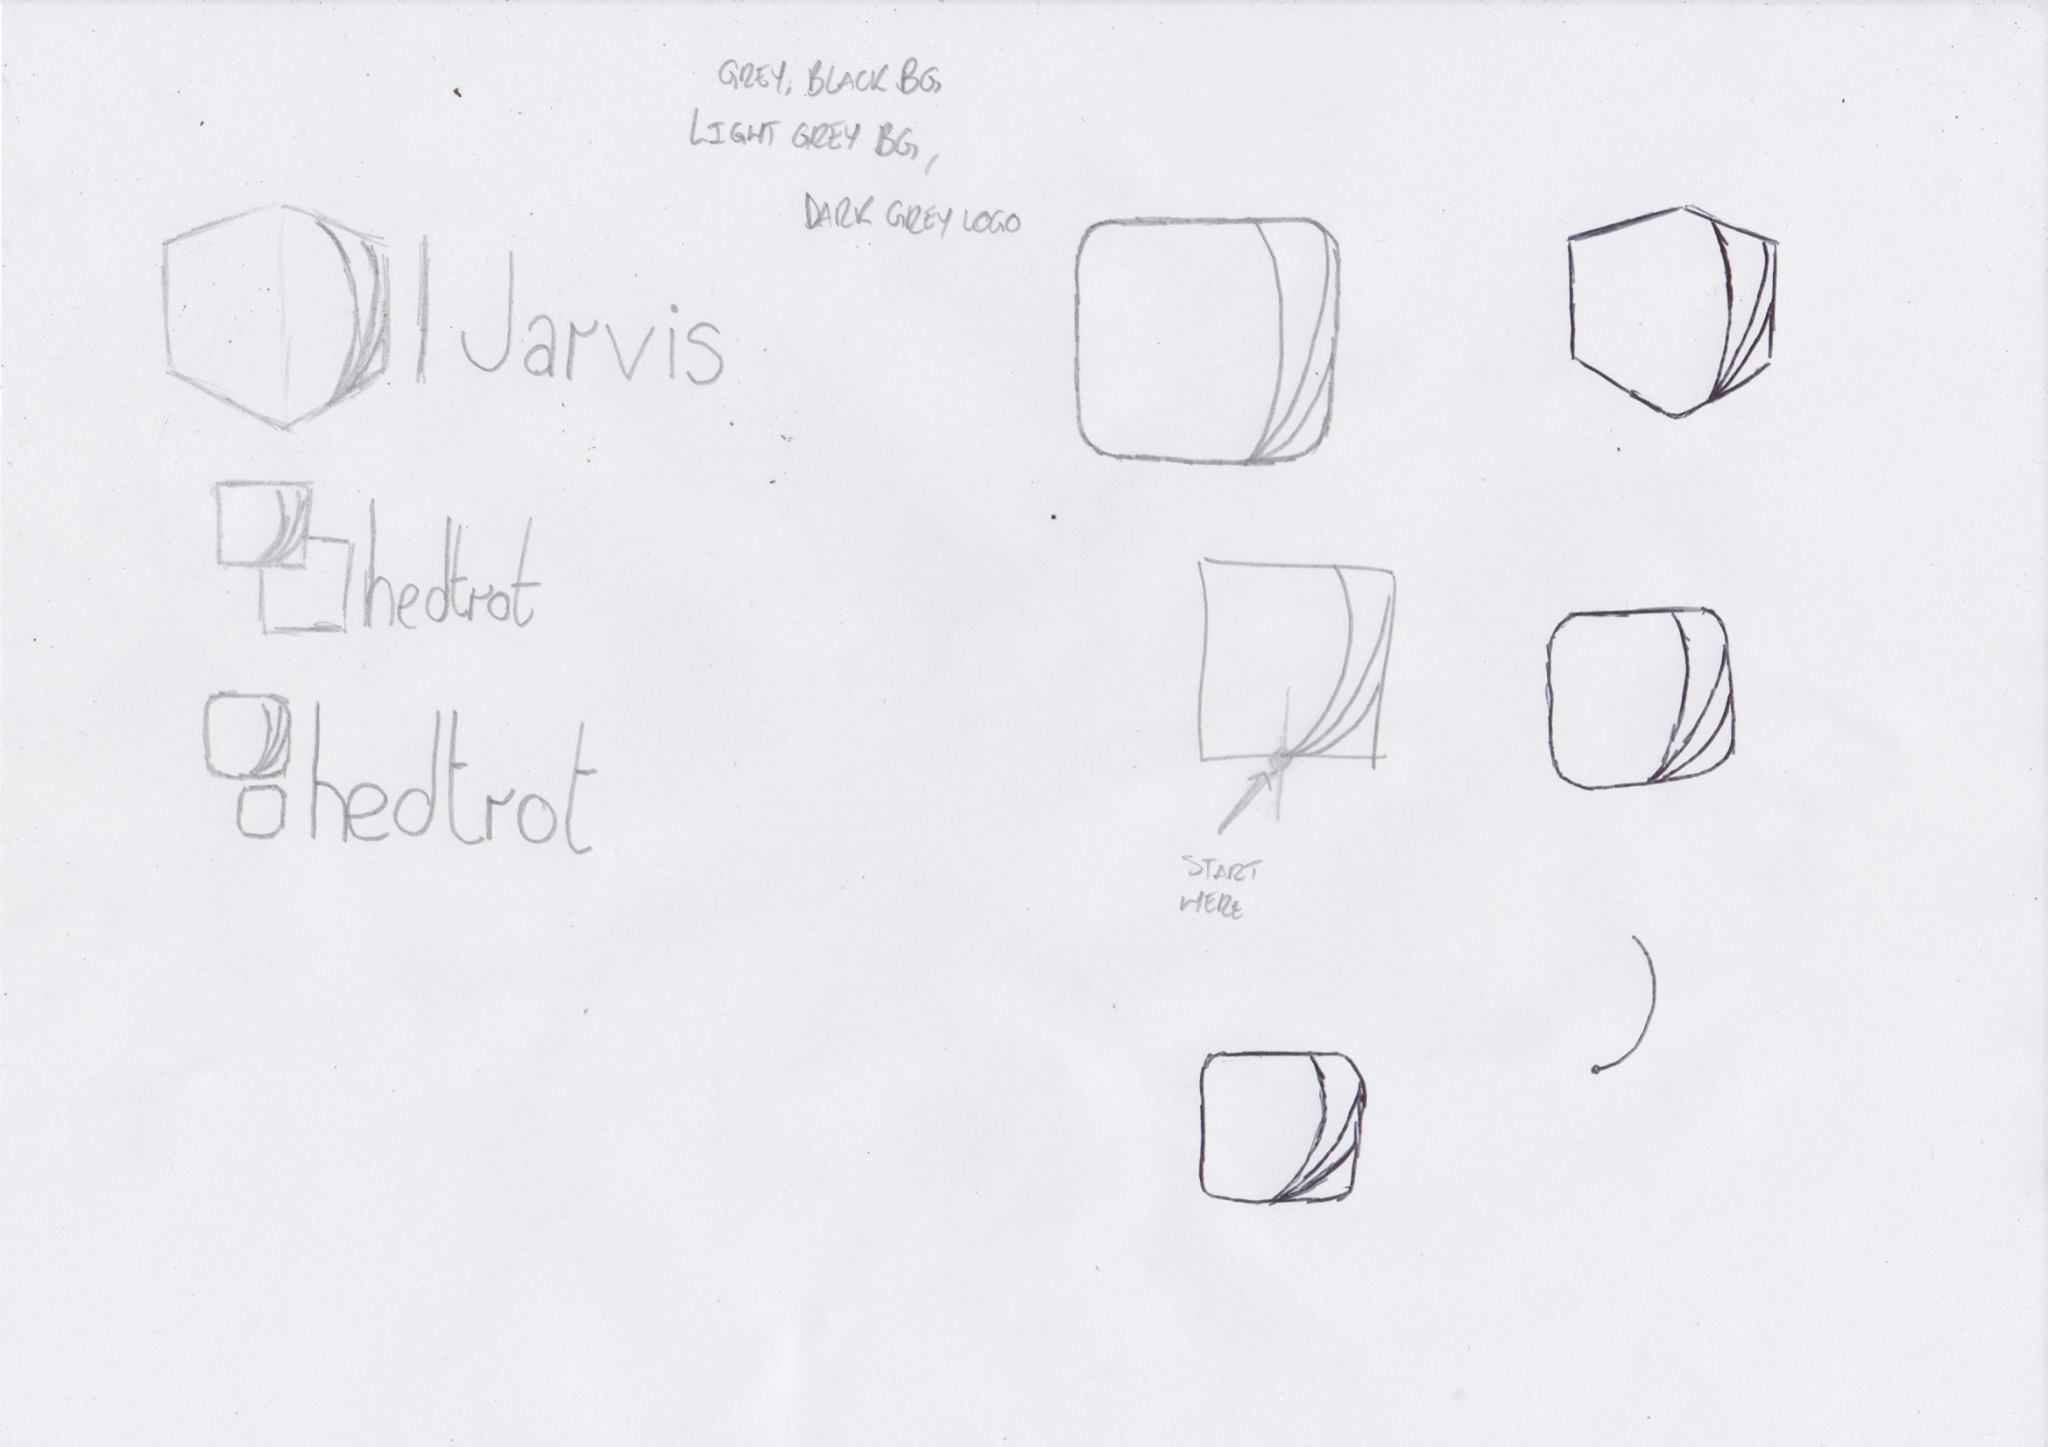 GREY, BLACK BG,
LIGHT GREY BG,
DARK GREY LOGO
Jarvis
hedtrot
hedtrot
START
HERE